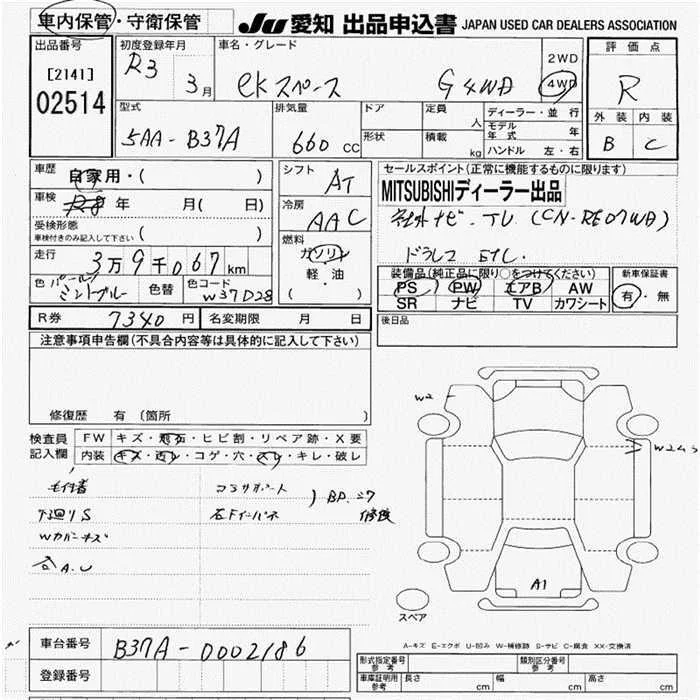 車内保管・守衛保管 JU 愛知 出品申込書 JAPAN USED CAR DEALERS ASSOCIATION
出品番号 初度登録年月 車名・グレード 評価点
[2141] R3 3月 eKスペース G 4WD 2WD 4WD R
02514
型式 排気量 ドア 定員 ディーラー・並行 外装 内装
5AA-B37A 660cc 形状 人 積載 kg モデル年式 年 B C
ハンドル 左・右
車歴 自家用・( ) シフト AT セールスポイント(正常に機能するものに限ります)
車検 R8年 月( 日) 冷房 AAC MITSUBISHIディーラー出品
受検形態 社外ナビ・TV (CN-RE07WD)
車検付きのみ記入して下さい ( ) 燃料 ドラレコ ETC.
走行 3万9千067km ガソリン
色 パールミントブルー 色替 色コード W37D28 軽油 ( ・ )
装備品(純正品に限り○をつけてください) 新車保証書
PS PW エアB AW 有・無
SR ナビ TV カワシート
R券 7340円 名変期限 月 日 後日品
注意事項申告欄(不具合内容等は具体的に記入して下さい)
修復歴 有 (箇所 )
検査員記入欄 FW キズ・飛石・ヒビ割・リペア跡・X要
内装 キズ・汚レ・コゲ・穴・スレ・キレ・破レ
W2
W2ムラ
コアサポート
下廻りS 右Fインパネ 修復
Wカバーキズ
A.U
A1
スペア
A-キズ E-エクボ U-凹み W-補修跡 S-サビ C-腐食 XX-交換済
車台番号 B37A-0002186
登録番号
形式指定番号 参考 類別区分番号 参考
車庫証明用 参考 長さ cm 幅 cm 高さ cm